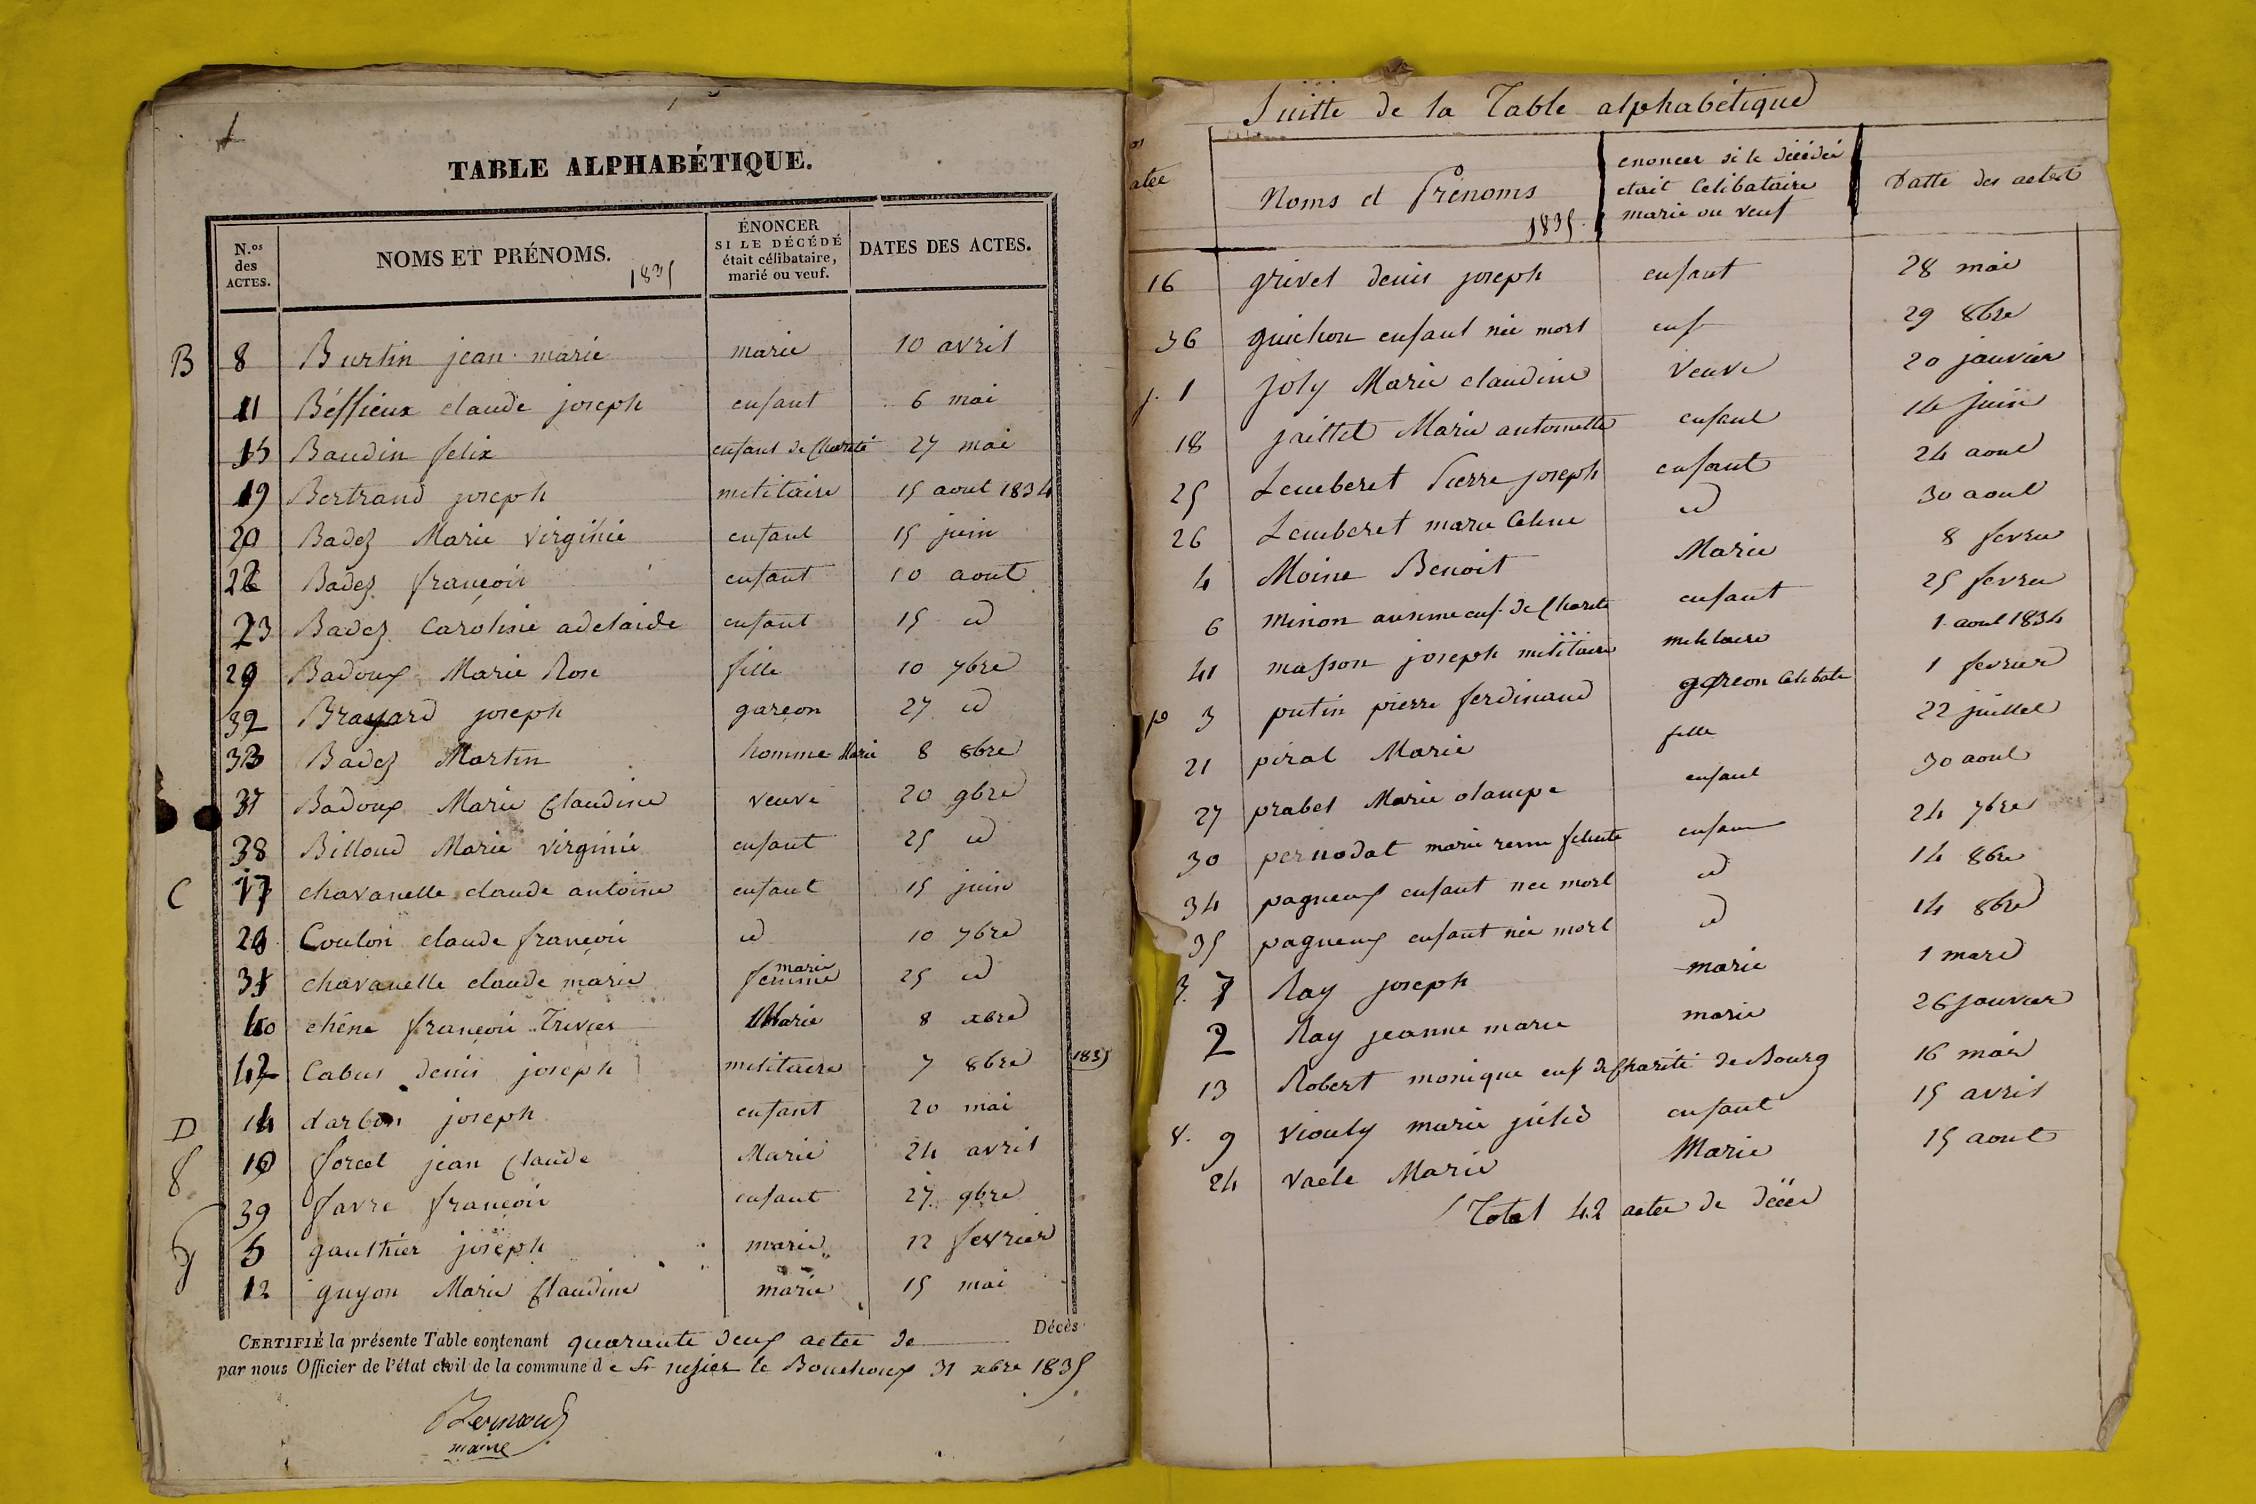 TABLE ALPHABÉTIQUE.
N.os des ACTES. NOMS ET PRÉNOMS. 1835 ÉNONCER SI LE DÉCÉDÉ était célibataire, marié ou veuf. DATES DES ACTES.
B 8 Burtin jean marie marie 10 avril
11 Béssieux claude joseph enfant 6 mai
15 Baudin felix enfant de Charité 27 mai
19 Bertrand joseph militaire 15 aout 1834
20 Badez Marie virginie enfant 15 juin
22 Badez françois enfant 10 aout
23 Badez Caroline adelaide enfant 15 id
29 Badoux Marie Rose fille 10 7bre
32 Brayard joseph garcon 27 id
33 Badez Martin homme Marie 8 8bre
37 Badoux Marie Claudine veuve 20 9bre
38 Billoud Marie virginie enfant 25 id
C 17 chavanelle claude antoine enfant 15 juin
28 Coulon claude françois id 10 7bre
31 chavanelle claude marie femme marie 25 id
40 chêne françois Trivier Marie 8 xbre
42 Cabus denis joseph militaire 7 8bre 1835
D 14 darbon joseph enfant 20 mai
10 forcet jean Claude Marie 24 avril
39 favre françois enfant 27 9bre
5 gauthier joseph marie 12 fevrier
12 guyon Marie Claudine marie 15 mai
CERTIFIÉ la présente Table contenant quarante deux actes de Décès
par nous Officier de l'état civil de la commune de le Bouchoux 31 xbre 1835
maire
Suitte de la Table alphabétique
Noms et Prénoms 1835. enoncer si le décédé etait Celibataire marie ou veuf Datte des actes
16 grivet denis joseph enfant 28 mai
36 guichon enfant née mort enf 29 8bre
j. 1 joly Marie claudine veuve 20 janvier
18 jaillet Marie antoinette enfant 14 juin
25 Lemberet Pierre joseph enfant 24 aout
26 Lemberet marie Celine id 30 aout
4 Moine Benoit Marie 8 fevrie
6 minon enf. de Charité enfant 25 fevrie
41 masson joseph militaire militaire 1 aout 1834
p 3 putin pierre ferdinand garcon Celibate 1 fevrier
21 piral Marie fille 22 juillet
27 prabel Marie olampe enfant 30 aout
30 pernodat marie felicité enfant 24 7bre
34 pagneux enfant née mort id 14 8bre
35 pagneux enfant née mort id 14 8bre
R. 7 Ray joseph marie 1 mars
2 Ray jeanne marie marie 26 janvier
13 Robert monique enf de Charité de Bourg 16 mai
V. 9 viouly marie julie enfant 15 avril
24 vaele Marie Marie 15 aout
Total 42 actes de décès